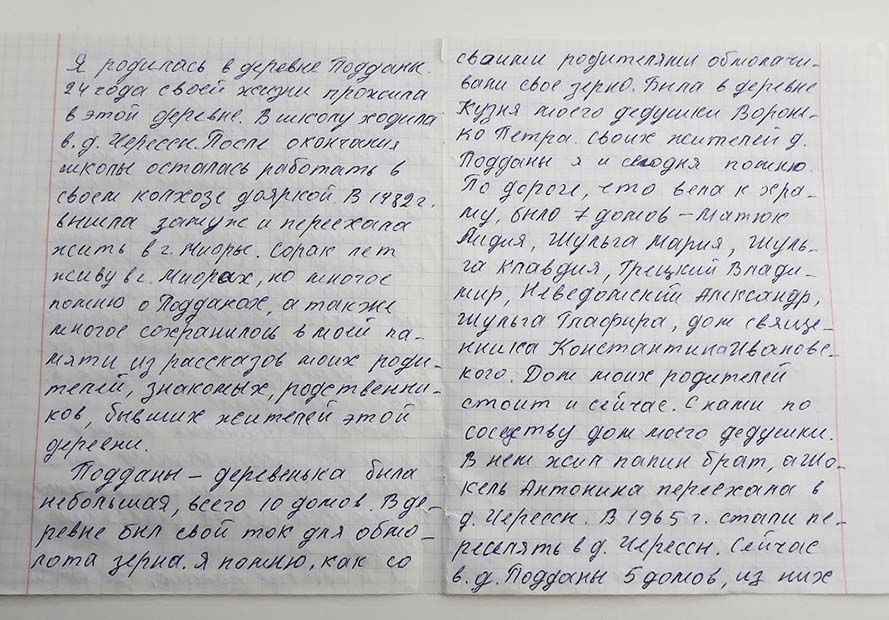 Я родилась в деревне Подданы.
24 года своей жизни прожила
в этой деревне. В школу ходила
в д. Черессы. После окончания
школы осталась работать в
своем колхозе дояркой. В 1982 г.
вышла замуж и переехала
жить в г. Миоры. Сорак лет
живу в г. Миорах, но многое
помню о Подданах, а также
многое сохранилось в моей па-
мяти из рассказов моих роди-
телей, знакомых, родственни-
ков, бывших жителей этой
деревни.
Подданы – деревенька была
небольшая, всего 10 домов. В де-
ревне был свой ток для обмо-
лота зерна. Я помню, как со
сваими родителями обмолачи-
вали свое зерно. Была в деревне
Кузня моего дедушки Ворон-
ко Петра. Своих жителей д.
Подданы я и сегодня помню.
По дороге, что вела к хра-
му, было 7 домов – Матюк
Лидия, Шульга Мария, Шуль-
га Клавдия, Трецкий Влади-
мир, Неведомский Александр,
Шульга Глафира, дом свяще-
нника Константина Ивановс-
кого. Дом моих родителей
стоит и сейчас. С нами по
соседству дом моего дедушки.
В нем жил папин брат, а Шо-
кель Антонина переехала в
д. Черессы. В 1965 г. стали пе-
реселять в д. Черессы. Сейчас
в д. Подданы 5 домов, из них